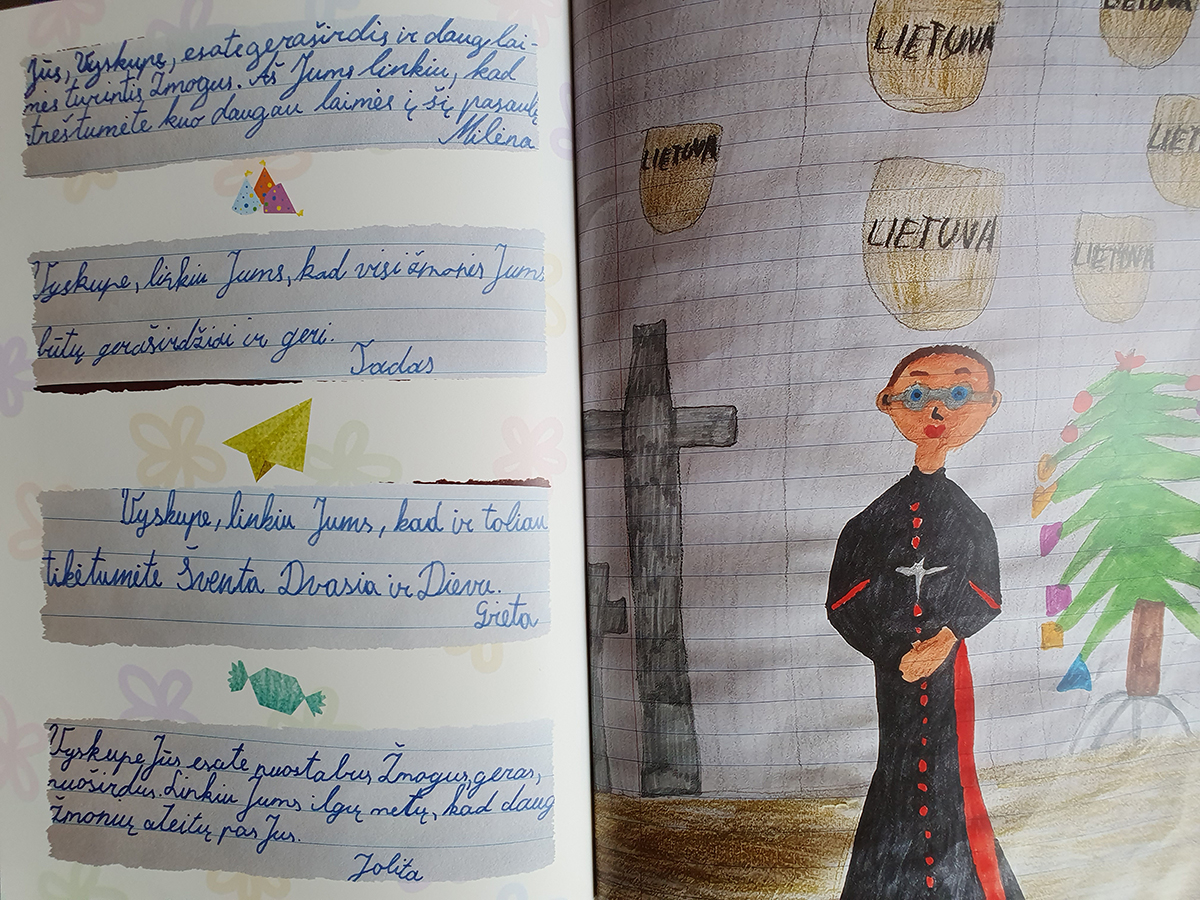 Jūs, Vyskupe, esate geraširdis ir daug lai-
mės turintis Žmogus. Aš Jums linkiu, kad
atneštumėte kuo daugiau laimės į šį pasaulį
Milėna
Vyskupe, linkiu Jums, kad visi žmonės Jums
būtų geraširdžiai ir geri.
Tadas
Vyskupe, linkiu Jums, kad ir toliau
tikėtumėte Šventa Dvasia ir Dievu.
Greta
Vyskupe, Jūs esate nuostabus Žmogus, geras,
nuoširdus. Linkiu Jums ilgų metų, kad daug
žmonių ateitų pas Jus.
Jolita
LIETUVA
LIETUVA
LIETUVA
LIET
LIETUVA
LIETUVA